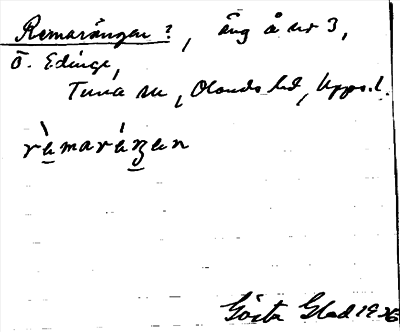 Remarängen?, äng å nr 3,
Ö. Edinge,
Tuna sn, Olands hd, Upps. l.
ràmaráŋen
Gösta Glad 1936